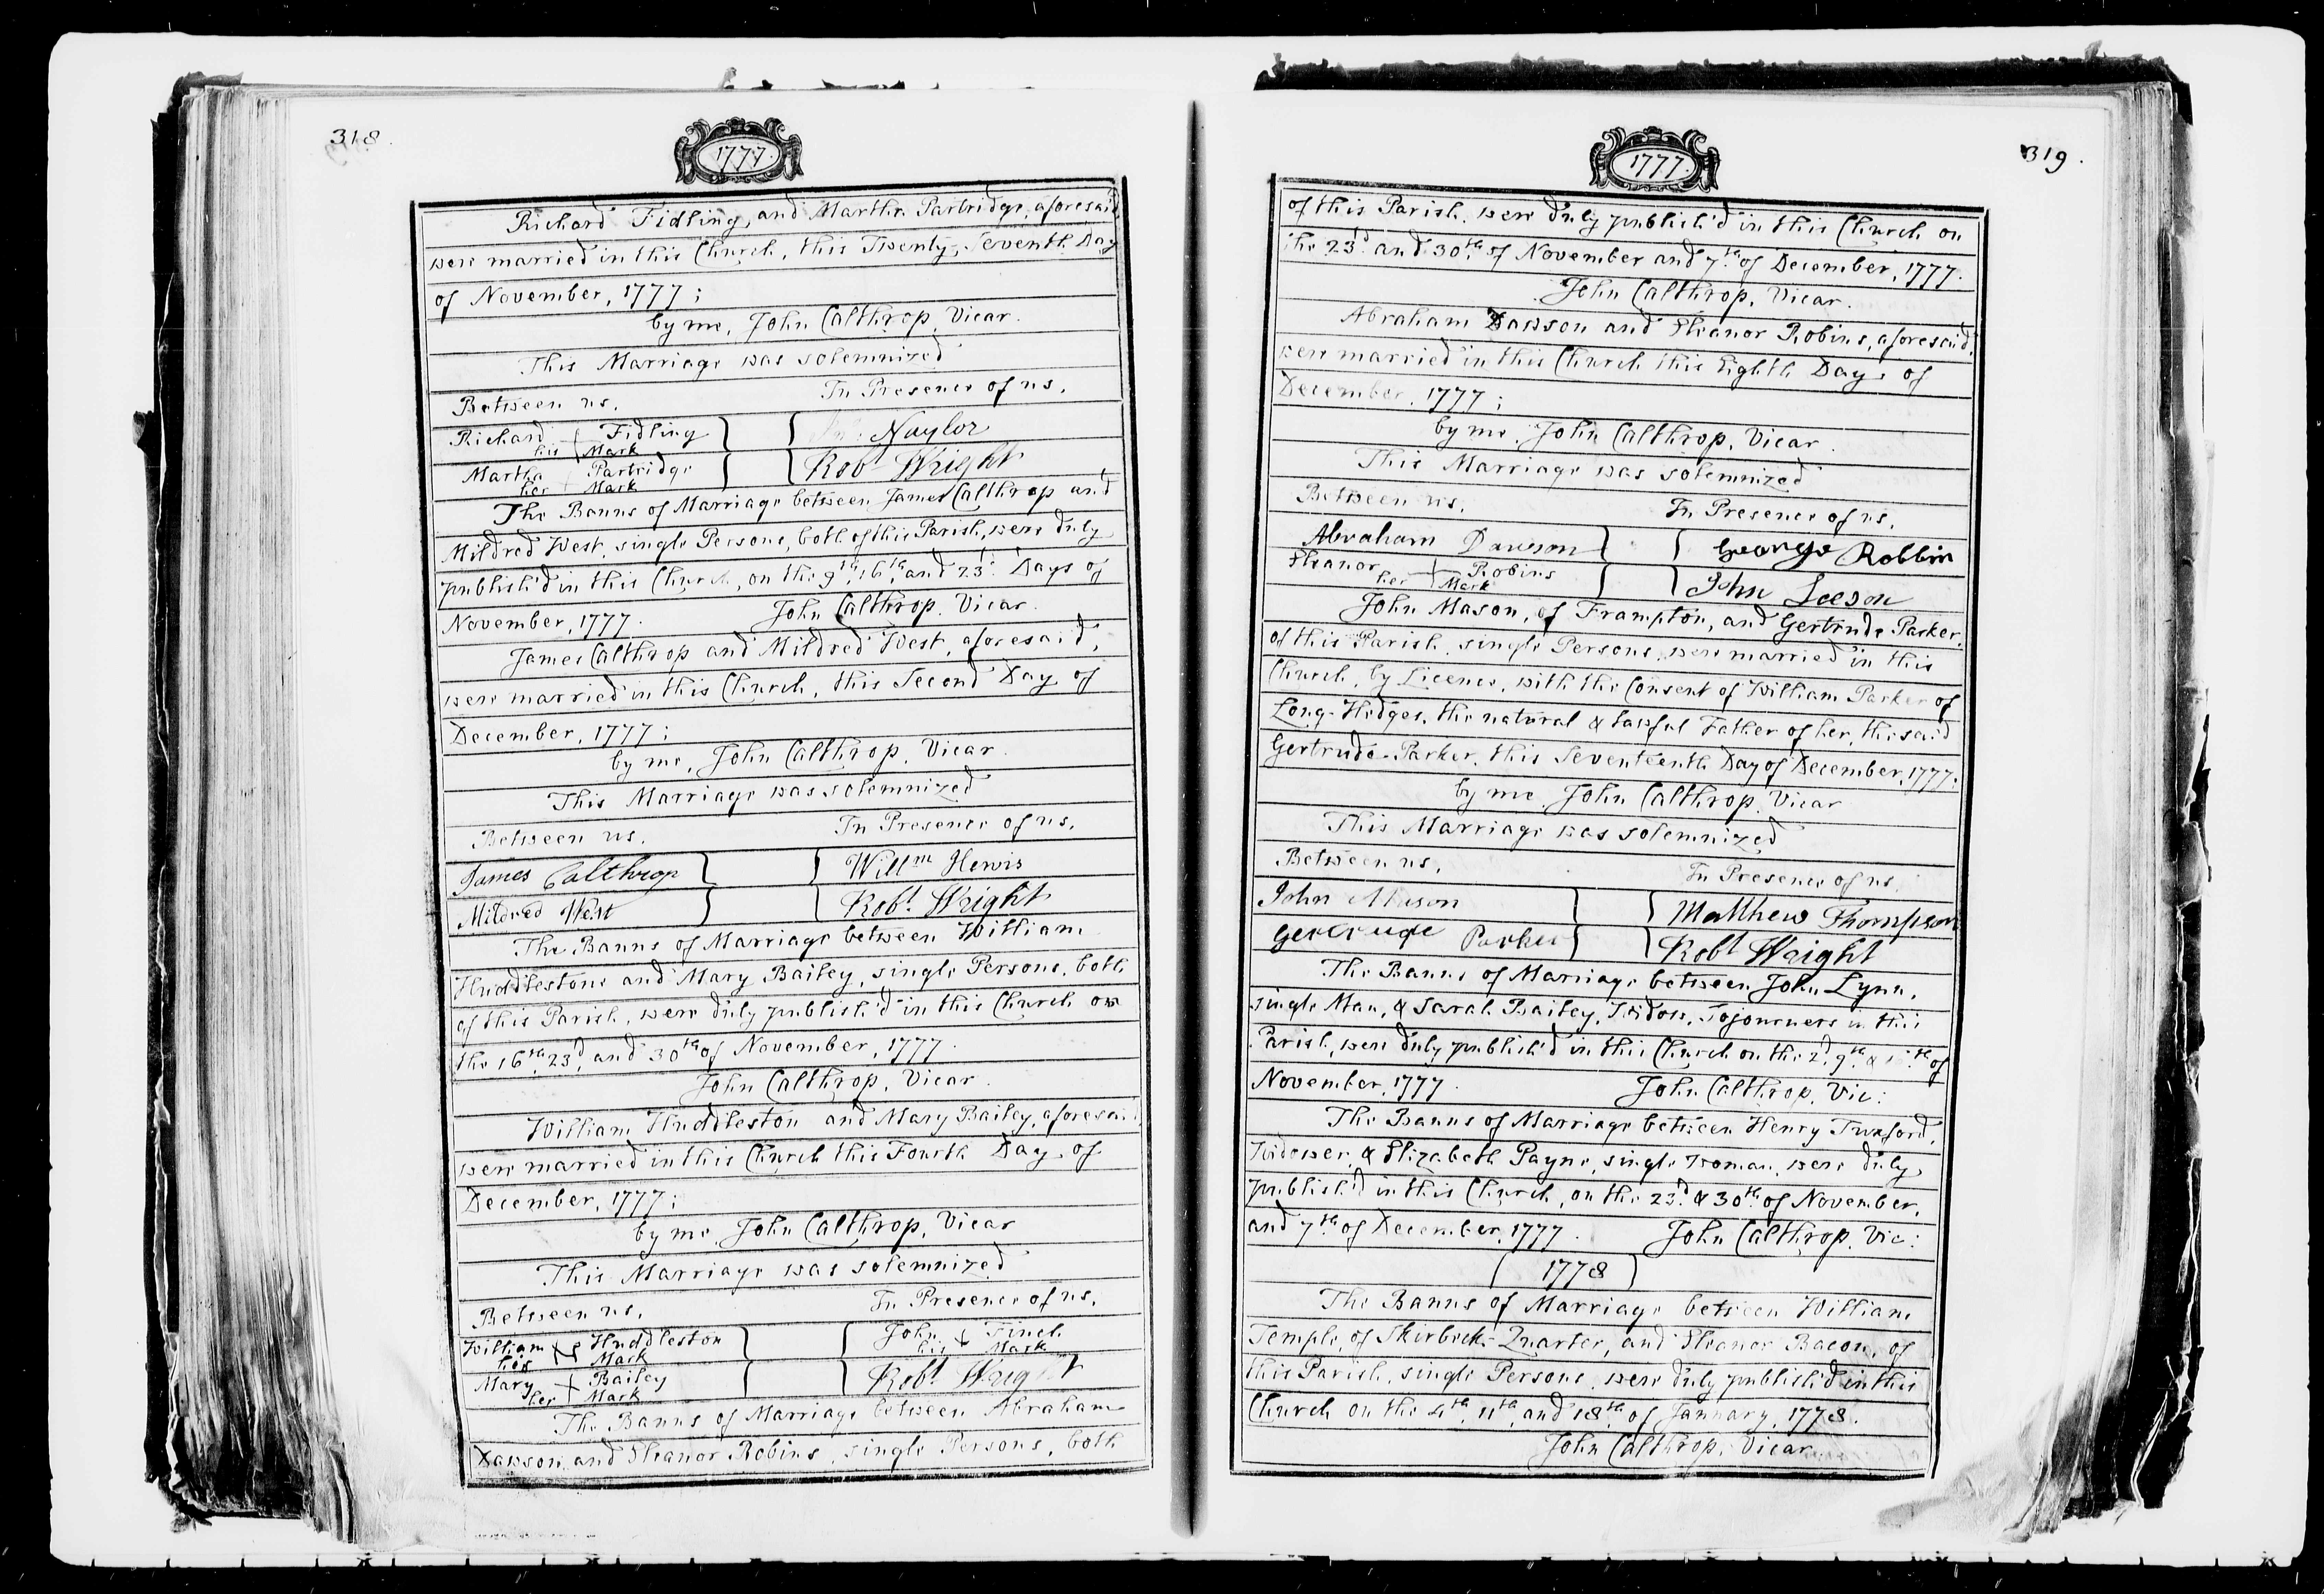 318.
1777.
Richard Fidling, and Martha Partridge, aforesaid
were married in this Church, this Twenty-Seventh Day
of November, 1777;
by me, John Calthrop, Vicar.
This Marriage was solemnized
Between us, In Presence of us,
Richard Fidling Naylor
his Mark
Martha Partridge Robt Wright
her Mark
The Banns of Marriage between James Calthrop and
Mildred West, single Persons, both of this Parish, were duly
publish'd in this Church, on the 9th, 16th, and 23d. Days of
November, 1777. John Calthrop, Vicar.
James Calthrop and Mildred West, aforesaid,
were married in this Church, this Second Day of
December, 1777;
by me, John Calthrop, Vicar.
This Marriage was solemnized
Between us, In Presence of us,
James Calthrop Willm Hewis
Mildred West Robt. Wright
The Banns of Marriage between William
Huddlestone and Mary Bailey, single Persons, both
of this Parish, were duly publish'd in this Church on
the 16th, 23d, and 30th of November, 1777.
John Calthrop, Vicar.
William Huddleston and Mary Bailey, aforesaid,
were married in this Church this Fourth Day of
December, 1777;
by me, John Calthrop, Vicar
This Marriage was solemnized
Between us, In Presence of us,
William Huddleston John Finch
his Mark his Mark
Mary Bailey Robt. Wright
her Mark
The Banns of Marriage between Abraham
Dawson and Eleanor Robins, single Persons, both
319.
1777.
of this Parish, were duly publish'd in this Church on
the 23d. and 30th. of November and 7th. of December, 1777.
John Calthrop, Vicar.
Abraham Dawson and Eleanor Robins, aforesaid,
were married in this Church this Eighth Day of
December, 1777;
by me, John Calthrop, Vicar.
This Marriage was solemnized
Between us, In Presence of us,
Abraham Dawson George Robbin
Eleanor Robins John Leeson
her Mark
John Mason, of Frampton, and Gertrude Parker,
of this Parish, single Persons, were married in this
Church, by Licence, with the Consent of William Parker of
Long-Hedges, the natural & lawful Father of her, the said
Gertrude Parker, this Seventeenth Day of December, 1777.
by me John Calthrop, Vicar
This Marriage was solemnized
Between us, In Presence of us,
John Mason Matthew Thompson
Gertrude Parker Robt Wright
The Banns of Marriage between John Lynn,
single Man, & Sarah Bailey, Widow, Sojourners in this
Parish, were duly publish'd in this Church on the 2d, 9th. & of
November, 1777. John Calthrop, Vic:
The Banns of Marriage between Henry Twxford,
Widower, & Elizabeth Payne, single Woman, were duly
publish'd in this Church, on the 23d. & 30th. of November,
and 7th. of December, 1777. John Calthrop, Vic:
1778
The Banns of Marriage between William
Temple, of Skirbeck-Quarter, and Eleanor Bacon, of
this Parish, single Persons, were duly publish'd in this
Church on the 4th, 11th, and 18th. of January, 1778.
John Calthrop, Vicar.